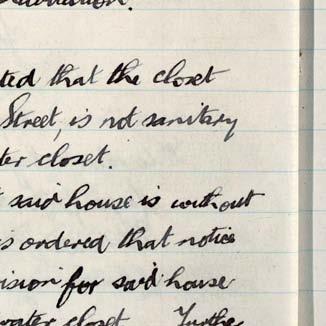 ted that the closet
Street, is not sanitary
ter closet.
said house is without
is ordered that notice
ision for said house
water closet Furthe